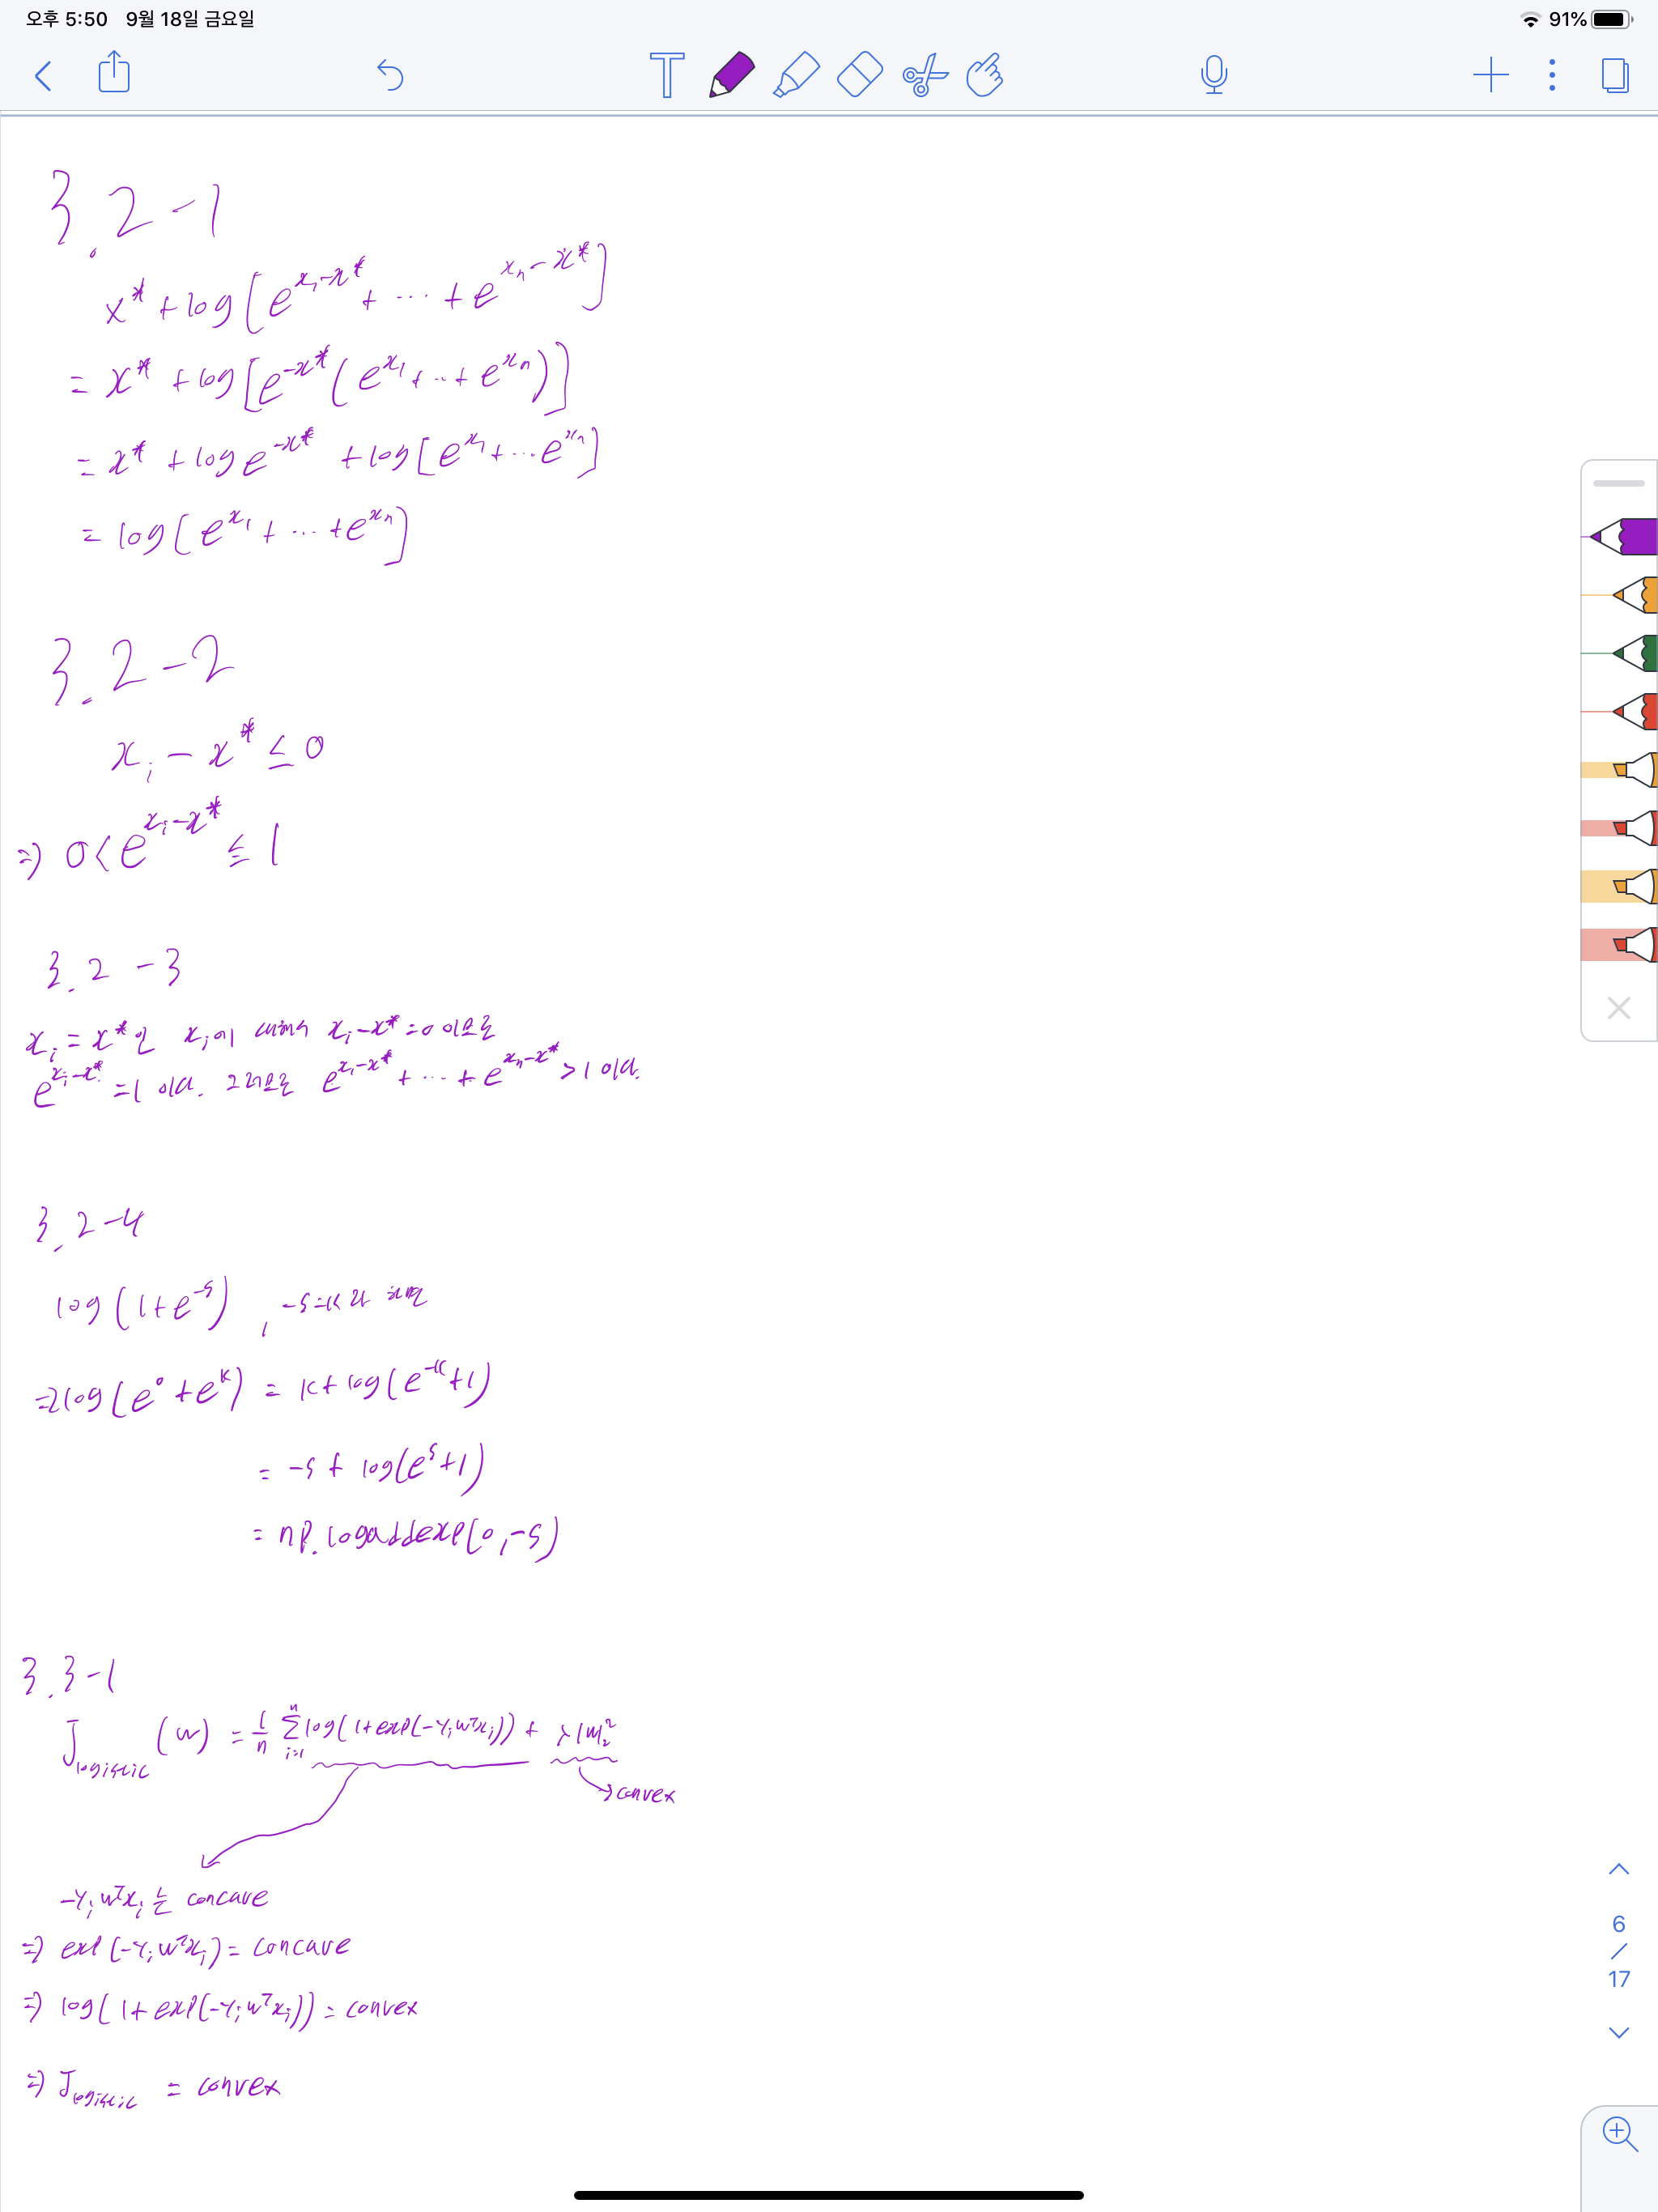 오후 5:50 9월 18일 금요일 91%
3.2-1
x* + log[e^{x₁-x*} + ⋯ + e^{xₙ-x*}]
= x* + log[e^{-x*}(e^{x₁} + ⋯ + e^{xₙ})]
= x* + log e^{-x*} + log[e^{x₁} + ⋯ e^{xₙ}]
= log[e^{x₁} + ⋯ + e^{xₙ}]
3.2-2
xᵢ - x* ≤ 0
⇒ 0 < e^{xᵢ-x*} ≤ 1
3.2-3
xᵢ = x* 인 xᵢ에 대해서 xᵢ-x* = 0 이므로
e^{xᵢ-x*} = 1 이다. 그러므로 e^{x₁-x*} + ⋯ + e^{xₙ-x*} > 1 이다.
3.2-4
log(1+e^{-s}), -s=k라 하면
⇒ log(e⁰ + e^k) = k + log(e^{-k}+1)
= -s + log(e^s+1)
= np.logaddexp(0,-s)
3.3-1
J_{logistic}(w) = 1/n Σ_{i=1}^{n} log(1+exp(-yᵢwᵀxᵢ)) + λ|w|₂²
→ convex
-yᵢwᵀxᵢ는 concave
⇒ exp(-yᵢwᵀxᵢ) = concave
⇒ log(1+exp(-yᵢwᵀxᵢ)) = convex
⇒ J_{logistic} = convex
6
/
17